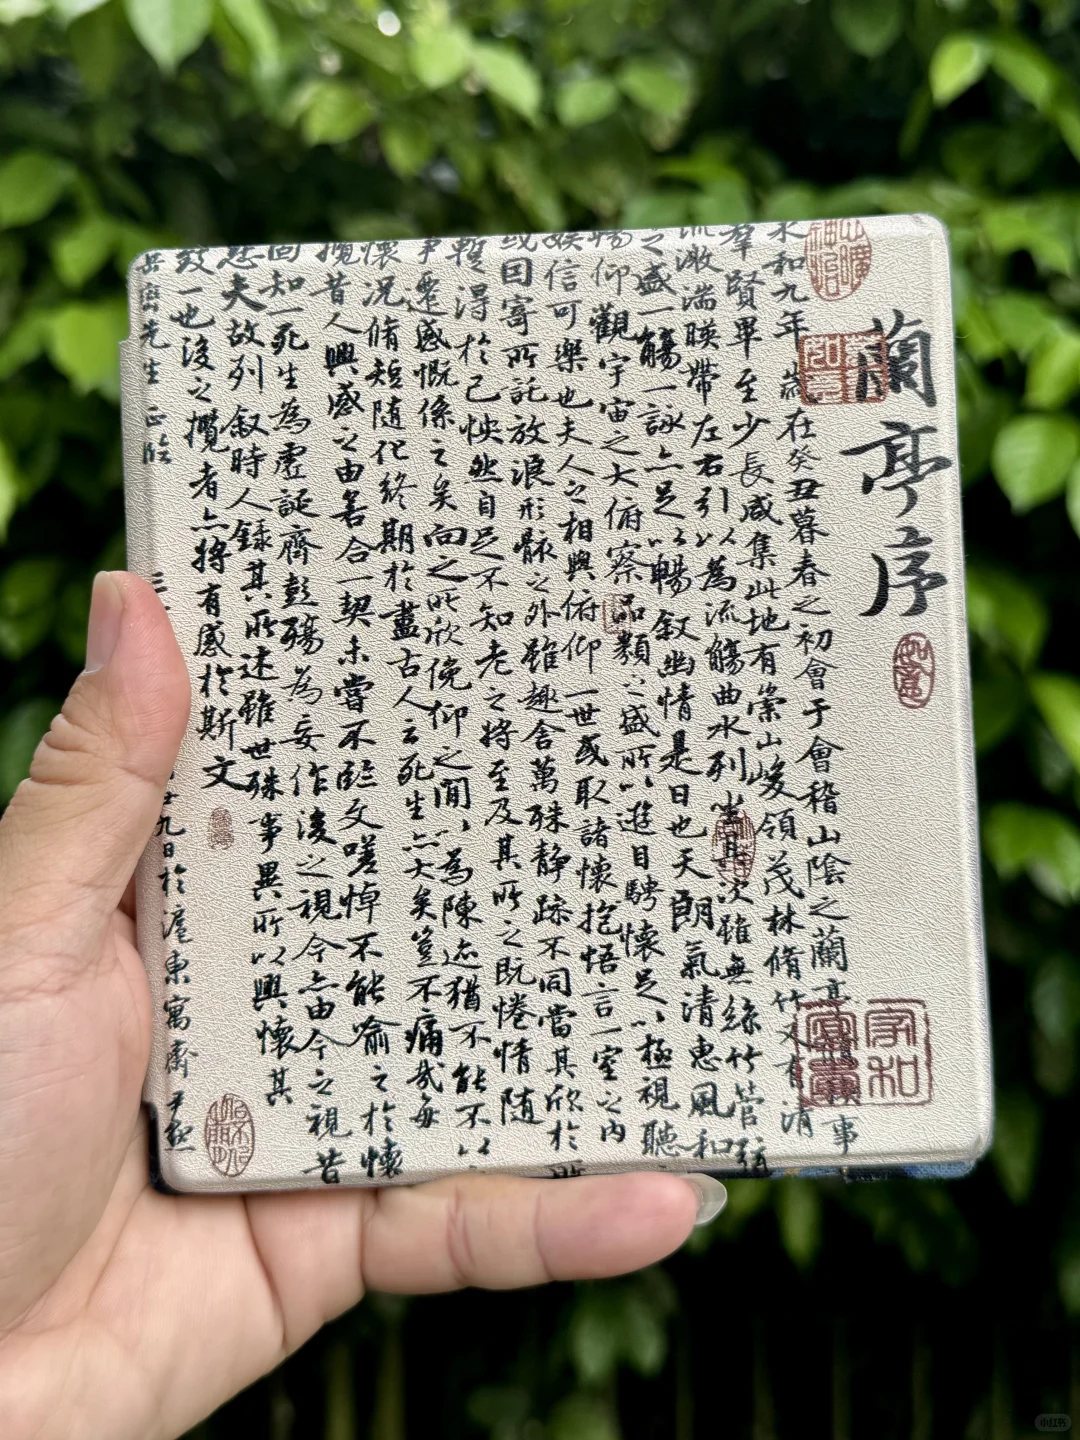 蘭亭序
永和九年歲在癸丑暮春之初會于會稽山陰之蘭亭事
羣賢畢至少長咸集此地有崇山峻領茂林脩竹又有清
流激湍暎帶左右引以為流觴曲水列坐其次雖無絲竹管弦
之盛一觴一詠亦足以暢敘幽情是日也天朗氣清惠風和
暢仰觀宇宙之大俯察品類之盛所以遊目騁懷足以極視聽
娛信可樂也夫人之相與俯仰一世或取諸懷抱悟言一室之內
或因寄所託放浪形骸之外雖趣舍萬殊静躁不同當其欣於所
暫得於己怏然自足不知老之將至及其所之既惓情随
事遷感慨係之矣向之所欣俛仰之閒以為陳迹猶不能不以
懷況脩短随化終期於盡古人云死生亦大矣豈不痛哉每
攬昔人興感之由若合一契未嘗不臨文嗟悼不能喻之於懷
固知一死生為虛誕齊彭殤為妄作後之視今亦由今之視昔
悲夫故列叙時人録其所述雖世殊事異所以興懷其
致一也後之攬者亦將有感於斯文
先生 正
廿九日於滬東寓齋
家和富貴
小红书